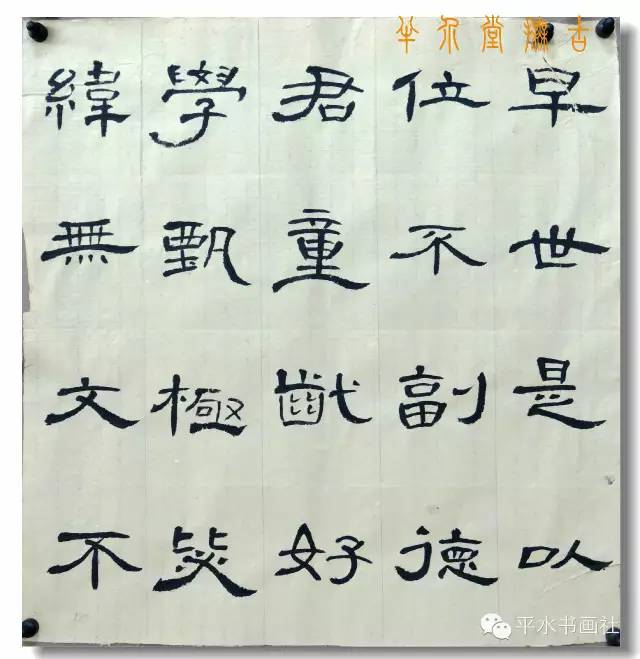 早世是以
位不副德
君童齔好
學甄極毖
緯無文不
平水书画社